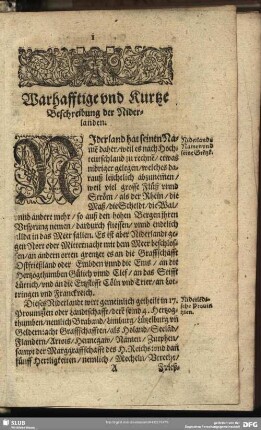 1
Warhafftige vnd Kurtze
Beschreibung der Nider-
landen.
NIderland hat seinen Na-
me daher / weil es nach Hoch-
teutschland zu rechne / etwas
nidriger gelegen / welches dar-
auß leichtlich abzunemen /
weil vil grosse Flüß vnd
Ström / als der Rhein / die
Maß / die Schelde / die
vnnd andere mehr / so auß den hohen Bergen jhren
Vrsprung nemen / dardurch fliessen / vnnd endtlich
allda in das Meer fallen. Es ist aber Niderlandt ge-
gen Nort oder Mitternacht mit dem Meer beschlos-
sen / an andern orten grentzt es an die Graffschafft
Ostfrießland oder Embden vnnd die Ems / an die
Hertzogthumben Gülch vnnd Clef / an das Stifft
Lüttich / vnd an die Ertzstifft Cöln vnd Trier / an Lot-
tringen vnd Franckreich.
Dieses Niderlandt wert gemeinlich getheilt in 17.
Prouintzen oder Landtschafft / derẽ send 4. Hertzog-
thumben / nemlich Braband / Limburg / Lützelburg vñ
Geldern: acht Graffschafften / als Holand / Seeläd /
Flandern / Artois / Hennegaw / Namen / Zutphen /
sampt der Marggraffschafft des H. Reichs: vnd dañ
fünff Herrligkeiten / nemlich / Mecheln / Vtrecht /
A
Frieß-
Niderlands
Namen vnd
seine Gräntz.
Niderlän-
dische Prouin-
tzien.
SLUB
Wir führen Wissen.
DFG